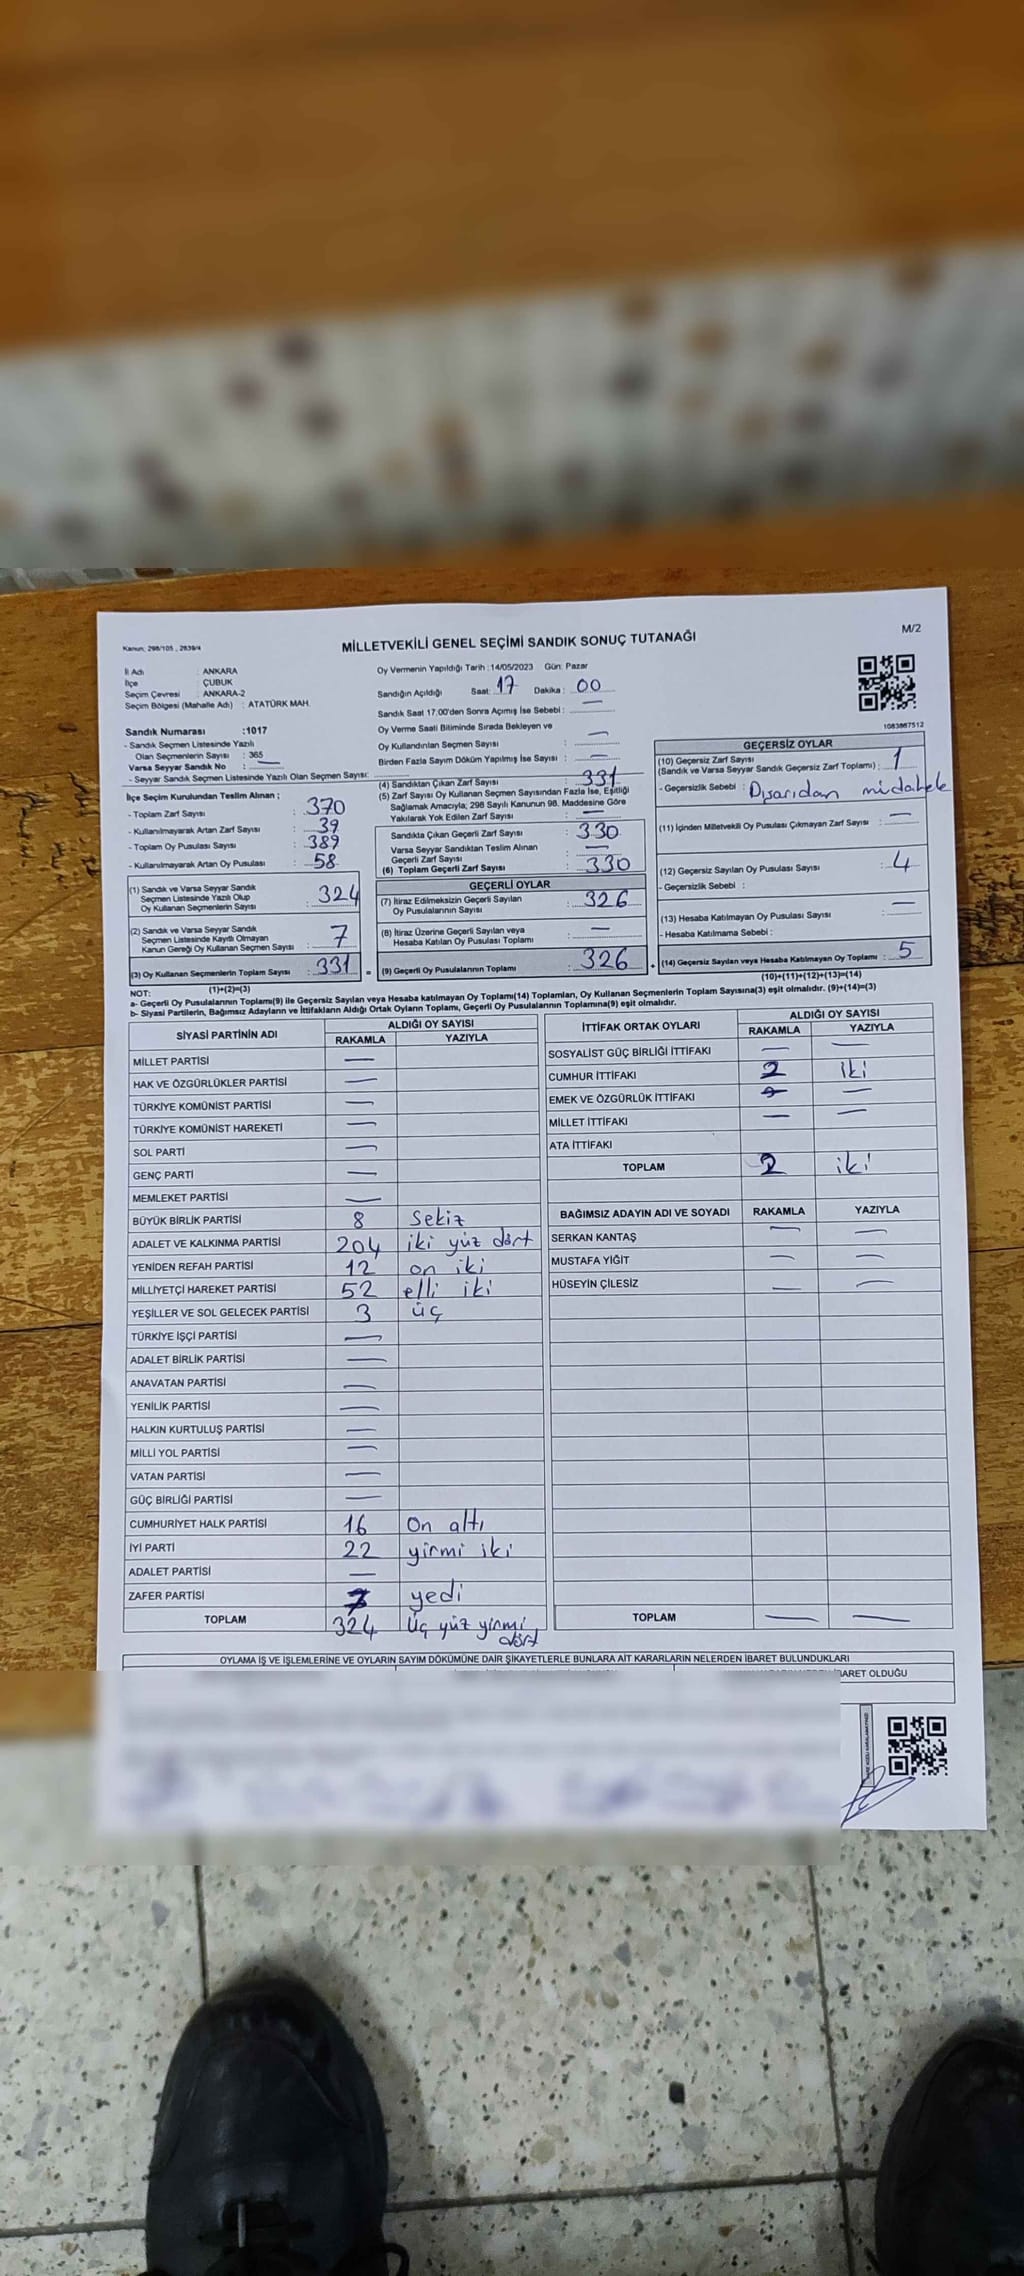 M/2
Kanun; 298/105 , 2839/4
MİLLETVEKİLİ GENEL SEÇİMİ SANDIK SONUÇ TUTANAĞI
İl Adı : ANKARA
İlçe : ÇUBUK
Seçim Çevresi : ANKARA-2
Seçim Bölgesi (Mahalle Adı) : ATATÜRK MAH.
Oy Vermenin Yapıldığı Tarih :14/05/2023 Gün: Pazar
Sandığın Açıldığı Saat: 17 Dakika : 00
Sandık Saat 17.00'den Sonra Açımış İse Sebebi : —
Oy Verme Saati Bitiminde Sırada Bekleyen ve
Oy Kullandırılan Seçmen Sayısı : —
Birden Fazla Sayım Döküm Yapılmış İse Sayısı : —
1083867512
Sandık Numarası :1017
- Sandık Seçmen Listesinde Yazılı
Olan Seçmenlerin Sayısı : 365
Varsa Seyyar Sandık No : —
- Seyyar Sandık Seçmen Listesinde Yazılı Olan Seçmen Sayısı:
İlçe Seçim Kurulundan Teslim Alınan ;
- Toplam Zarf Sayısı : 370
- Kullanılmayarak Artan Zarf Sayısı : 39
- Toplam Oy Pusulası Sayısı : 389
- Kullanılmayarak Artan Oy Pusulası : 58
(1) Sandık ve Varsa Seyyar Sandık
Seçmen Listesinde Yazılı Olup
Oy Kullanan Seçmenlerin Sayısı : 324
(2) Sandık ve Varsa Seyyar Sandık
Seçmen Listesinde Kayıtlı Olmayan
Kanun Gereği Oy Kullanan Seçmen Sayısı : 7
(3) Oy Kullanan Seçmenlerin Toplam Sayısı : 331
(1)+(2)=(3)
(4) Sandıktan Çıkan Zarf Sayısı : 331
(5) Zarf Sayısı Oy Kullanan Seçmen Sayısından Fazla İse, Eşitliği
Sağlamak Amacıyla; 298 Sayılı Kanunun 98. Maddesine Göre
Yakılarak Yok Edilen Zarf Sayısı : —
Sandıkta Çıkan Geçerli Zarf Sayısı : 330
Varsa Seyyar Sandıktan Teslim Alınan
Geçerli Zarf Sayısı : —
(6) Toplam Geçerli Zarf Sayısı : 330
GEÇERLİ OYLAR
(7) İtiraz Edilmeksizin Geçerli Sayılan
Oy Pusulalarının Sayısı : 326
(8) İtiraz Üzerine Geçerli Sayılan veya
Hesaba Katılan Oy Pusulası Toplamı : —
= (9) Geçerli Oy Pusulalarının Toplamı : 326 +
GEÇERSİZ OYLAR
(10) Geçersiz Zarf Sayısı
(Sandık ve Varsa Seyyar Sandık Geçersiz Zarf Toplamı) : 1
- Geçersizlik Sebebi : Dışarıdan midahele
(11) İçinden Milletvekili Oy Pusulası Çıkmayan Zarf Sayısı : —
(12) Geçersiz Sayılan Oy Pusulası Sayısı : 4
- Geçersizlik Sebebi :
(13) Hesaba Katılmayan Oy Pusulası Sayısı : —
- Hesaba Katılmama Sebebi :
(14) Geçersiz Sayılan veya Hesaba Katılmayan Oy Toplamı : 5
(10)+(11)+(12)+(13)=(14)
NOT:
a- Geçerli Oy Pusulalarının Toplamı(9) ile Geçersiz Sayılan veya Hesaba katılmayan Oy Toplamı(14) Toplamları, Oy Kullanan Seçmenlerin Toplam Sayısına(3) eşit olmalıdır. (9)+(14)=(3)
b- Siyasi Partilerin, Bağımsız Adayların ve İttifakların Aldığı Ortak Oyların Toplamı, Geçerli Oy Pusulalarının Toplamına(9) eşit olmalıdır.
SİYASİ PARTİNİN ADI ALDIĞI OY SAYISI
RAKAMLA YAZIYLA
MİLLET PARTİSİ —
HAK VE ÖZGÜRLÜKLER PARTİSİ —
TÜRKİYE KOMÜNİST PARTİSİ —
TÜRKİYE KOMÜNİST HAREKETİ —
SOL PARTİ —
GENÇ PARTİ —
MEMLEKET PARTİSİ —
BÜYÜK BİRLİK PARTİSİ 8 Sekiz
ADALET VE KALKINMA PARTİSİ 204 iki yüz dört
YENİDEN REFAH PARTİSİ 12 on iki
MİLLİYETÇİ HAREKET PARTİSİ 52 elli iki
YEŞİLLER VE SOL GELECEK PARTİSİ 3 üç
TÜRKİYE İŞÇİ PARTİSİ —
ADALET BİRLİK PARTİSİ —
ANAVATAN PARTİSİ —
YENİLİK PARTİSİ —
HALKIN KURTULUŞ PARTİSİ —
MİLLİ YOL PARTİSİ —
VATAN PARTİSİ —
GÜÇ BİRLİĞİ PARTİSİ —
CUMHURİYET HALK PARTİSİ 16 On altı
İYİ PARTİ 22 yirmi iki
ADALET PARTİSİ —
ZAFER PARTİSİ 7 yedi
TOPLAM 324 Üç yüz yirmi
dört
İTTİFAK ORTAK OYLARI ALDIĞI OY SAYISI
RAKAMLA YAZIYLA
SOSYALİST GÜÇ BİRLİĞİ İTTİFAKI — —
CUMHUR İTTİFAKI 2 iki
EMEK VE ÖZGÜRLÜK İTTİFAKI — —
MİLLET İTTİFAKI — —
ATA İTTİFAKI
TOPLAM 2 iki
BAĞIMSIZ ADAYIN ADI VE SOYADI RAKAMLA YAZIYLA
SERKAN KANTAŞ — —
MUSTAFA YİĞİT — —
HÜSEYİN ÇİLESİZ — —
TOPLAM — —
OYLAMA İŞ VE İŞLEMLERİNE VE OYLARIN SAYIM DÖKÜMÜNE DAİR ŞİKAYETLERLE BUNLARA AİT KARARLARIN NELERDEN İBARET BULUNDUKLARI
İBARET OLDUĞU